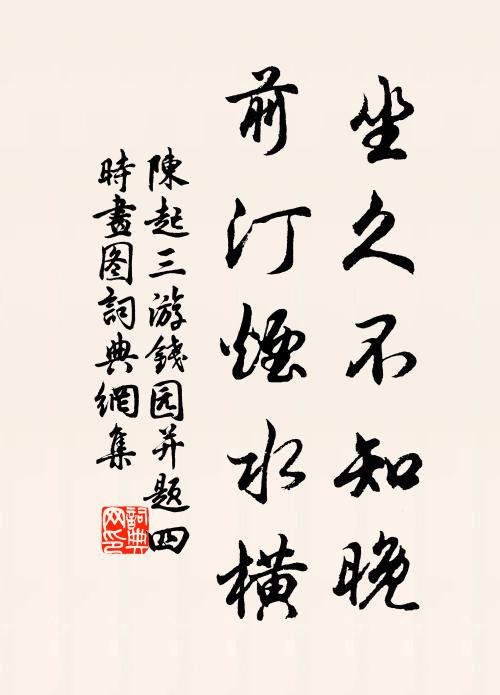 坐久不知晚
前汀煙水橫
陳起三游錢园并题四
時畫图詞典網集
詞典
网印